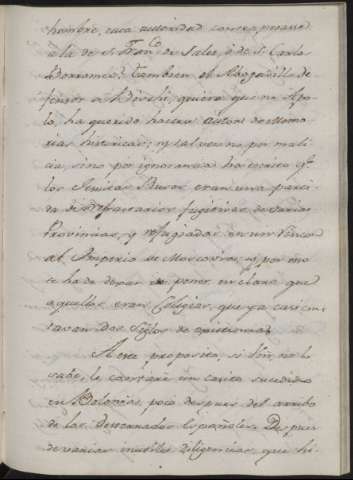 hombre, cuia autoridad contrapesasse
a la de S. Fran.co de Sales, ò de S. Carlo
Borromeo? Tambien el Abogadillo de-
fensor
quiere que no Apo-
lo, ha querido hacerse autor de Memo-
rias historicas; y tal vez no por mali-
cia, sino por ignorancia ha escrito q.e
los Jesuitas Rusos eran una parti-
da de refractarios fugitivos de varias
Provincias, y refugiados en un rincon
del Imperio de Moscovia; y por no
te ha de dexar de poner en claro que
aquellos eran Colegios, que ya casi con-
tavan dos siglos de existencia.
A este proposito, si Vm. no lo
sabe, le contaré un casito sucedido
en Bolonia, poco despues del arribo
de los desterrados Españoles. Despues
de varias inutiles diligencias, que hi-